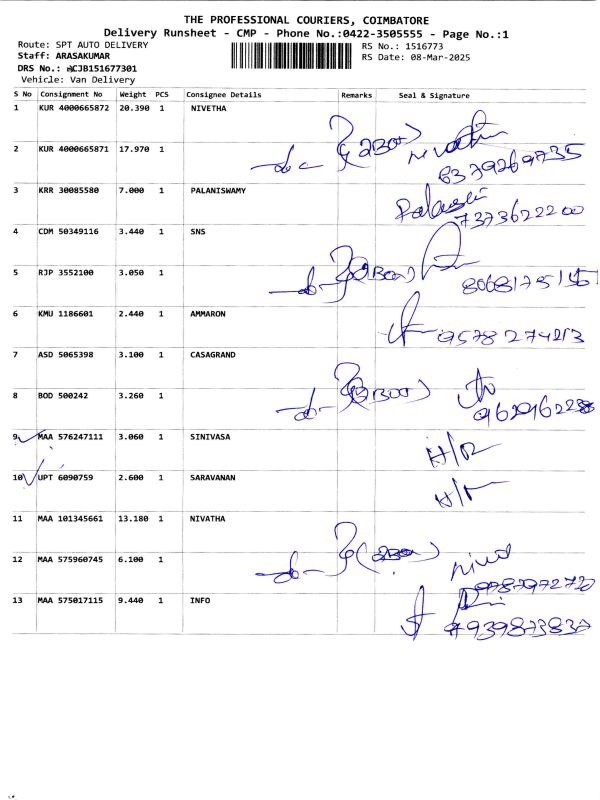 THE PROFESSIONAL COURIERS, COIMBATORE
Delivery Runsheet - CMP - Phone No.:0422-3505555 - Page No.:1
Route: SPT AUTO DELIVERY
RS No.: 1516773
Staff: ARASAKUMAR
RS Date: 08-Mar-2025
DRS No.: ACJB151677301
Vehicle: Van Delivery
S No Consignment No Weight PCS Consignee Details Remarks Seal & Signature
1 KUR 4000665872 20.390 1 NIVETHA
2 KUR 4000665871 17.970 1
6379269735
3 KRR 30085580 7.000 1 PALANISWAMY
7373622200
4 CDM 50349116 3.440 1 SNS
5 RJP 3552100 3.050 1
6 KMU 1186601 2.440 1 AMMARON
9578274213
7 ASD 5065398 3.100 1 CASAGRAND
8 BOD 500242 3.260 1
9 MAA 576247111 3.060 1 SINIVASA
10 UPT 6090759 2.600 1 SARAVANAN
11 MAA 101345661 13.180 1 NIVATHA
12 MAA 575960745 6.100 1
13 MAA 575017115 9.440 1 INFO